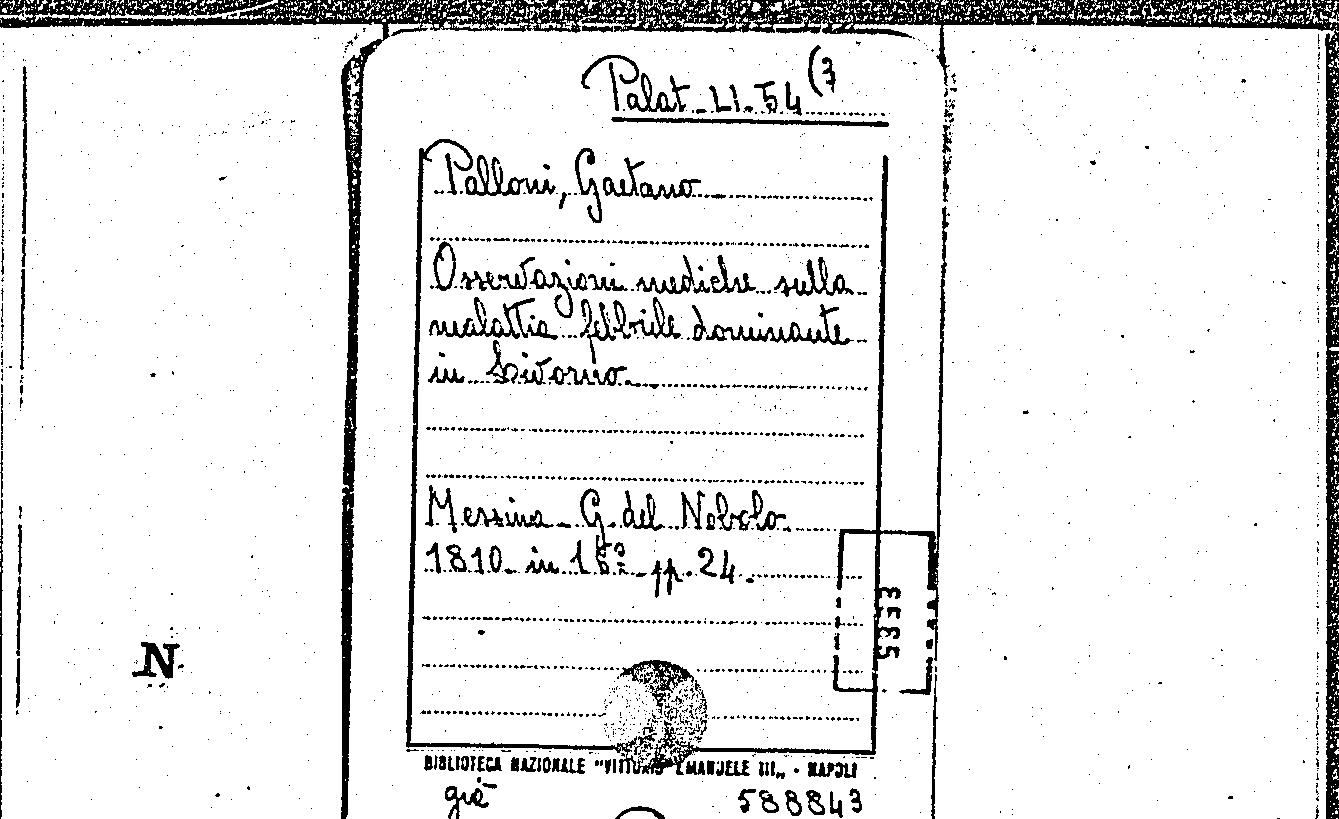 Palat. LI. 54 (3
Palloni, Gaetano
Osservazioni mediche sulla
malattia febbrile dominante
in Livorno.
Messina G. del Nobolo
1810. in 16º pp. 24.
5353
N
BIBLIOTECA NAZIONALE "VITTORIO EMANUELE III„ - NAPOLI
già 588843